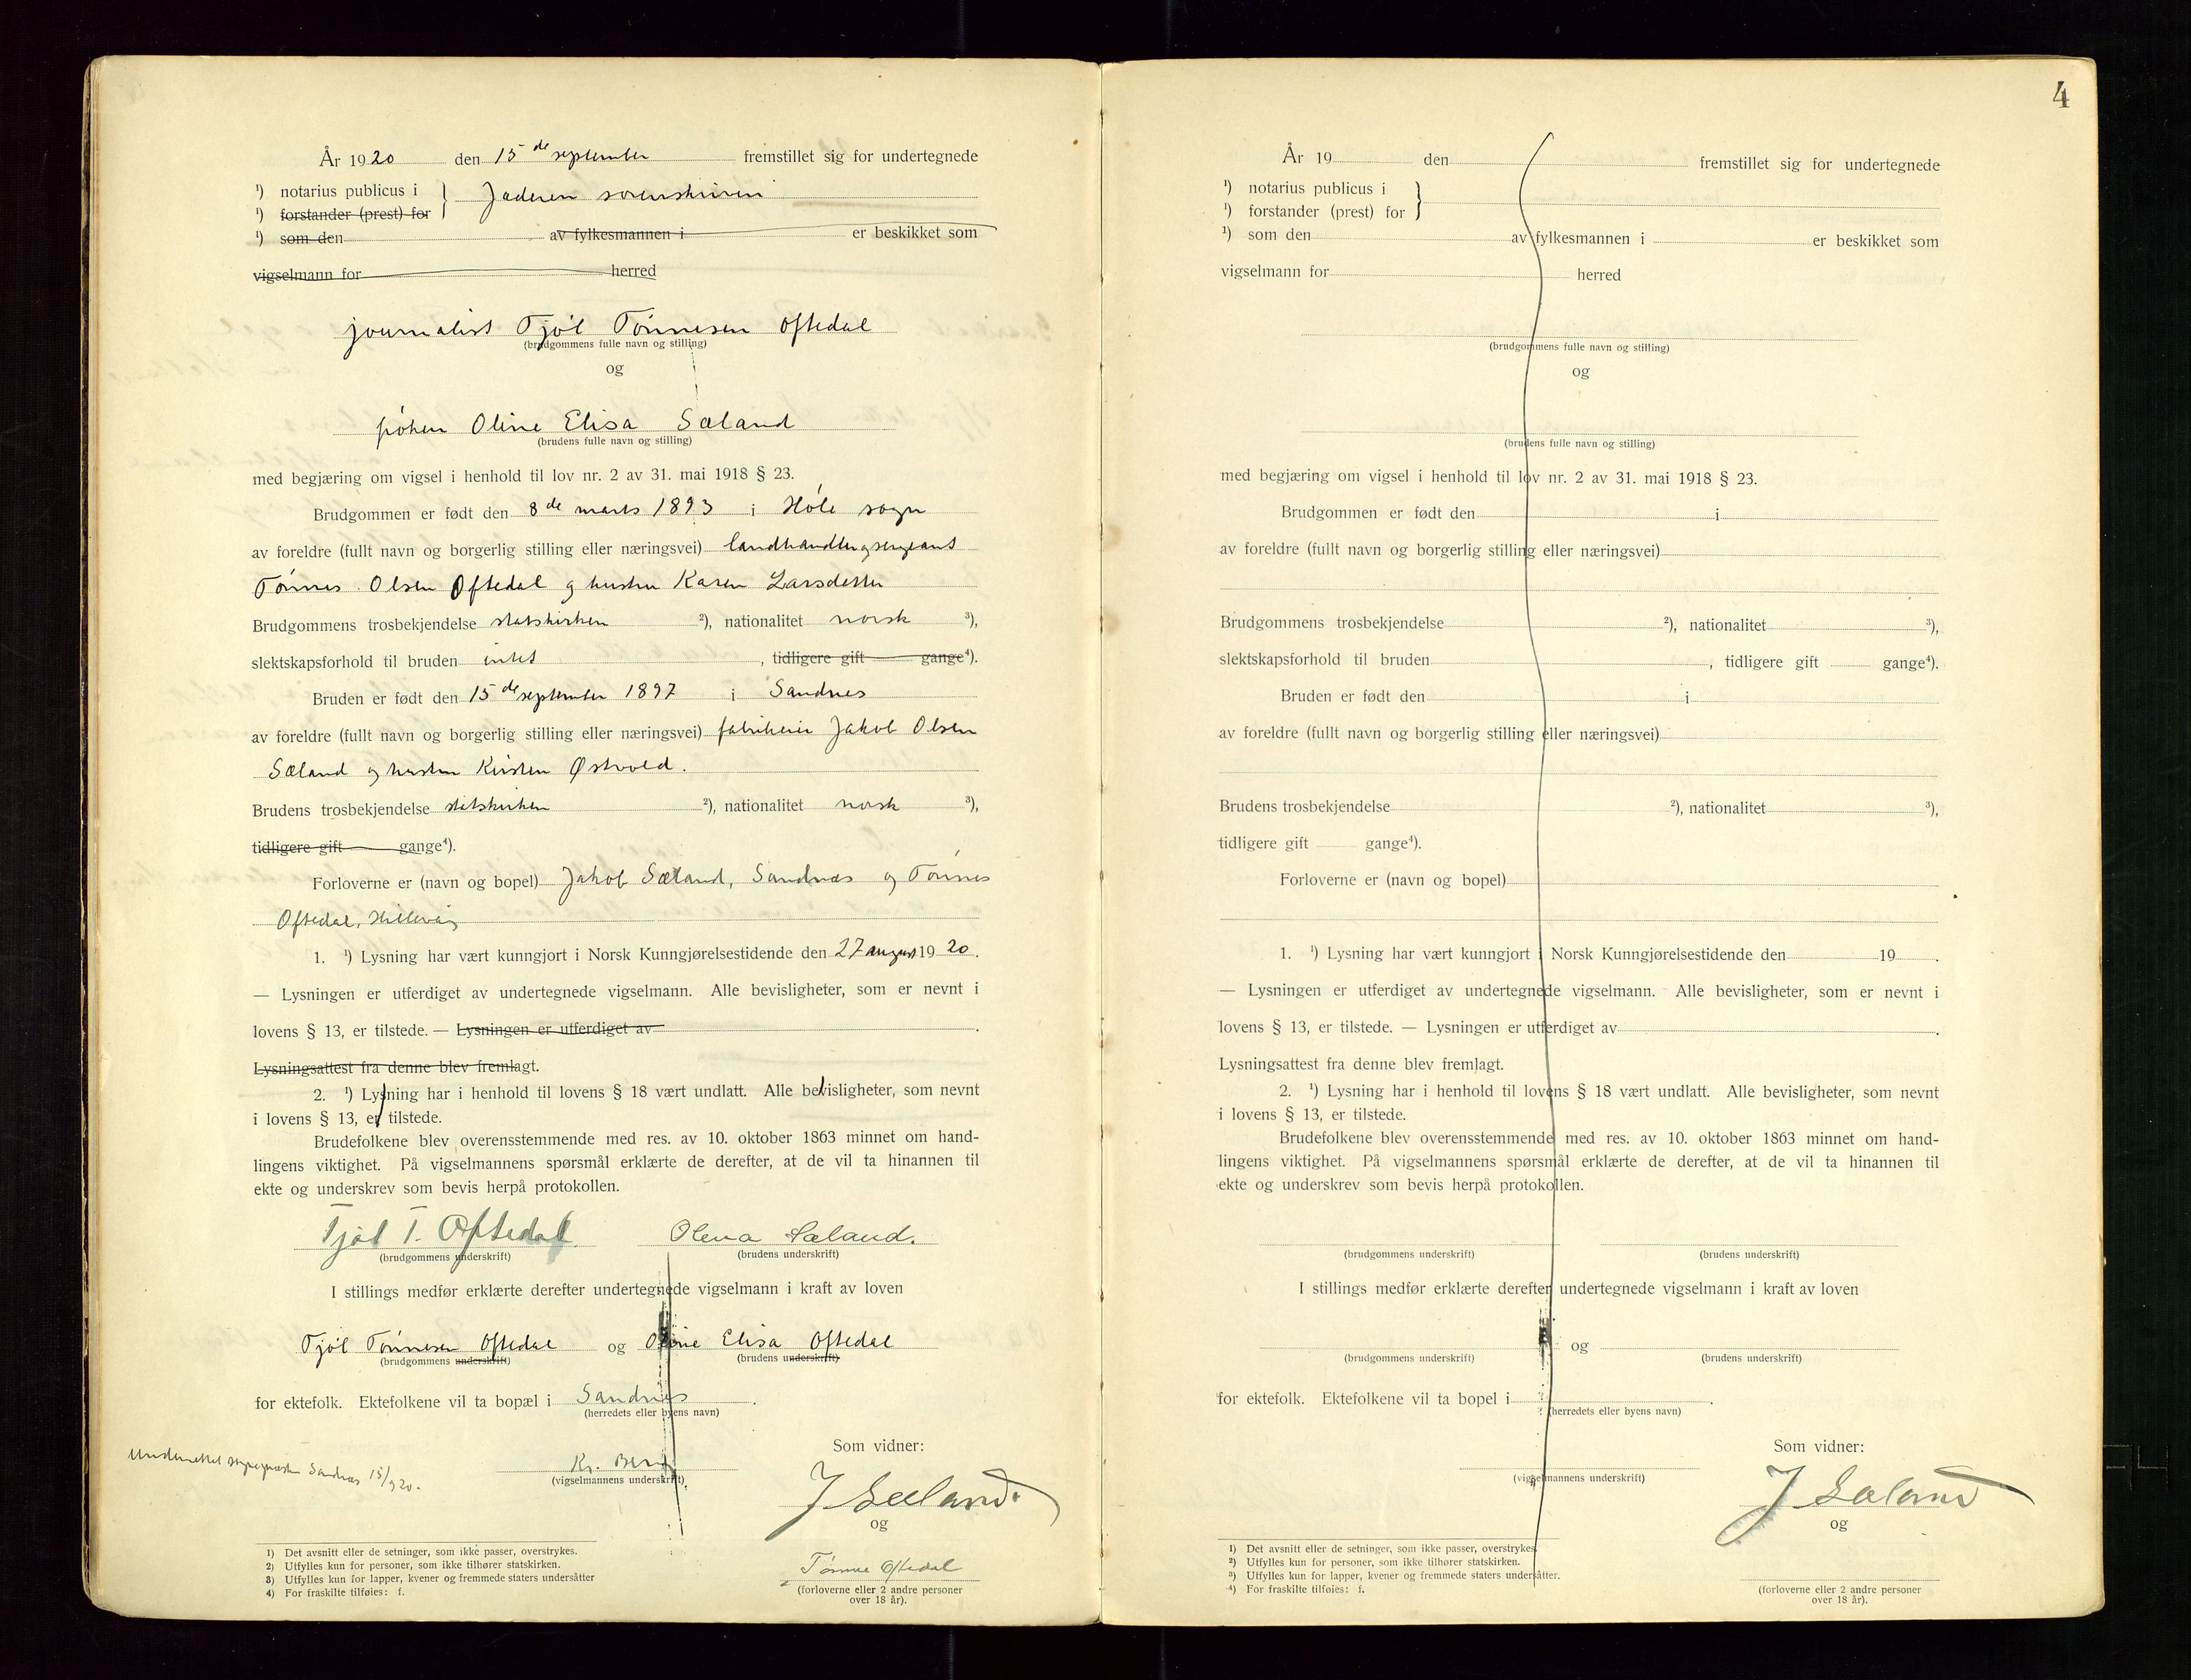 År 1920 den 15 de september fremstillet sig for undertegnede
¹) notarius publicus i } Jæderen sorenskriveri
¹) forstander (prest) for
¹) som den av fylkesmannen i er beskikket som
vigselmann for herred
journalist Tjøl Tønnesen Oftedal
(brudgommens fulle navn og stilling)
og
frøken Oline Elisa Sæland
(brudens fulle navn og stilling)
med begjæring om vigsel i henhold til lov nr. 2 av 31. mai 1918 § 23.
Brudgommen er født den 8 de marts 1893 i Høle sogn
av foreldre (fullt navn og borgerlig stilling eller næringsvei) landhandler og sergeant
Tønnes Olsen Oftedal og hustru Karen Larsdetter
Brudgommens trosbekjendelse statskirken ²), nationalitet norsk ³),
slektskapsforhold til bruden intet , tidligere gift gange⁴).
Bruden er født den 15 de september 1897 i Sandnes
av foreldre (fullt navn og borgerlig stilling eller næringsvei) fabrikeier Jakob Olsen
Sæland og hustru Kirsten Østvold.
Brudens trosbekjendelse statskirken ²), nationalitet norsk ³),
tidligere gift gange⁴).
Forloverne er (navn og bopel) Jakob Sæland, Sandnæs og Tønnes
Oftedal, Hillevåg
1. ¹) Lysning har vært kunngjort i Norsk Kunngjørelsestidende den 27 august 1920.
— Lysningen er utferdiget av undertegnede vigselmann. Alle bevisligheter, som er nevnt i
lovens § 13, er tilstede. — Lysningen er utferdiget av .
Lysningsattest fra denne blev fremlagt.
2. ¹) Lysning har i henhold til lovens § 18 vært undlatt. Alle bevisligheter, som nevnt
i lovens § 13, er tilstede.
Brudefolkene blev overensstemmende med res. av 10. oktober 1863 minnet om hand-
lingens viktighet. På vigselmannens spørsmål erklærte de derefter, at de vil ta hinannen til
ekte og underskrev som bevis herpå protokollen.
Tjøl T. Oftedal Olena Sæland.
(brudgommens underskrift) (brudens underskrift)
I stillings medfør erklærte derefter undertegnede vigselmann i kraft av loven
Tjøl Tønnesen Oftedal og Oline Elisa Oftedal
(brudgommens underskrift) (brudens underskrift)
for ektefolk. Ektefolkene vil ta bopæl i Sandnes .
(herredets eller byens navn)
Som vidner:
Underrettet sognepræsten Sandnæs 15/9 20.
Kr.
(vigselmannens underskrift)
J Sæland.
og
Tønnes Oftedal
(forloverne eller 2 andre personer
over 18 år).
1) Det avsnitt eller de setninger, som ikke passer, overstrykes.
2) Utfylles kun for personer, som ikke tilhører statskirken.
3) Utfylles kun for lapper, kvener og fremmede staters undersåtter
4) For fraskilte tilføies: f.
4
År 19 den fremstillet sig for undertegnede
¹) notarius publicus i }
¹) forstander (prest) for
¹) som den av fylkesmannen i er beskikket som
vigselmann for herred
(brudgommens fulle navn og stilling)
og
(brudens fulle navn og stilling)
med begjæring om vigsel i henhold til lov nr. 2 av 31. mai 1918 § 23.
Brudgommen er født den i
av foreldre (fullt navn og borgerlig stilling eller næringsvei)
Brudgommens trosbekjendelse ²), nationalitet ³),
slektskapsforhold til bruden , tidligere gift gange⁴).
Bruden er født den i
av foreldre (fullt navn og borgerlig stilling eller næringsvei)
Brudens trosbekjendelse ²), nationalitet ³),
tidligere gift gange⁴).
Forloverne er (navn og bopel)
1. ¹) Lysning har vært kunngjort i Norsk Kunngjørelsestidende den 19 .
— Lysningen er utferdiget av undertegnede vigselmann. Alle bevisligheter, som er nevnt i
lovens § 13, er tilstede. — Lysningen er utferdiget av .
Lysningsattest fra denne blev fremlagt.
2. ¹) Lysning har i henhold til lovens § 18 vært undlatt. Alle bevisligheter, som nevnt
i lovens § 13, er tilstede.
Brudefolkene blev overensstemmende med res. av 10. oktober 1863 minnet om hand-
lingens viktighet. På vigselmannens spørsmål erklærte de derefter, at de vil ta hinannen til
ekte og underskrev som bevis herpå protokollen.
(brudgommens underskrift) (brudens underskrift)
I stillings medfør erklærte derefter undertegnede vigselmann i kraft av loven
og
(brudgommens underskrift) (brudens underskrift)
for ektefolk. Ektefolkene vil ta bopel i .
(herredets eller byens navn)
Som vidner:
(vigselmannens underskrift)
J Sæland
og
(forloverne eller 2 andre personer
over 18 år).
1) Det avsnitt eller de setninger, som ikke passer, overstrykes.
2) Utfylles kun for personer, som ikke tilhører statskirken.
3) Utfylles kun for lapper, kvener og fremmede staters undersåtter.
4) For fraskilte tilføies: f.